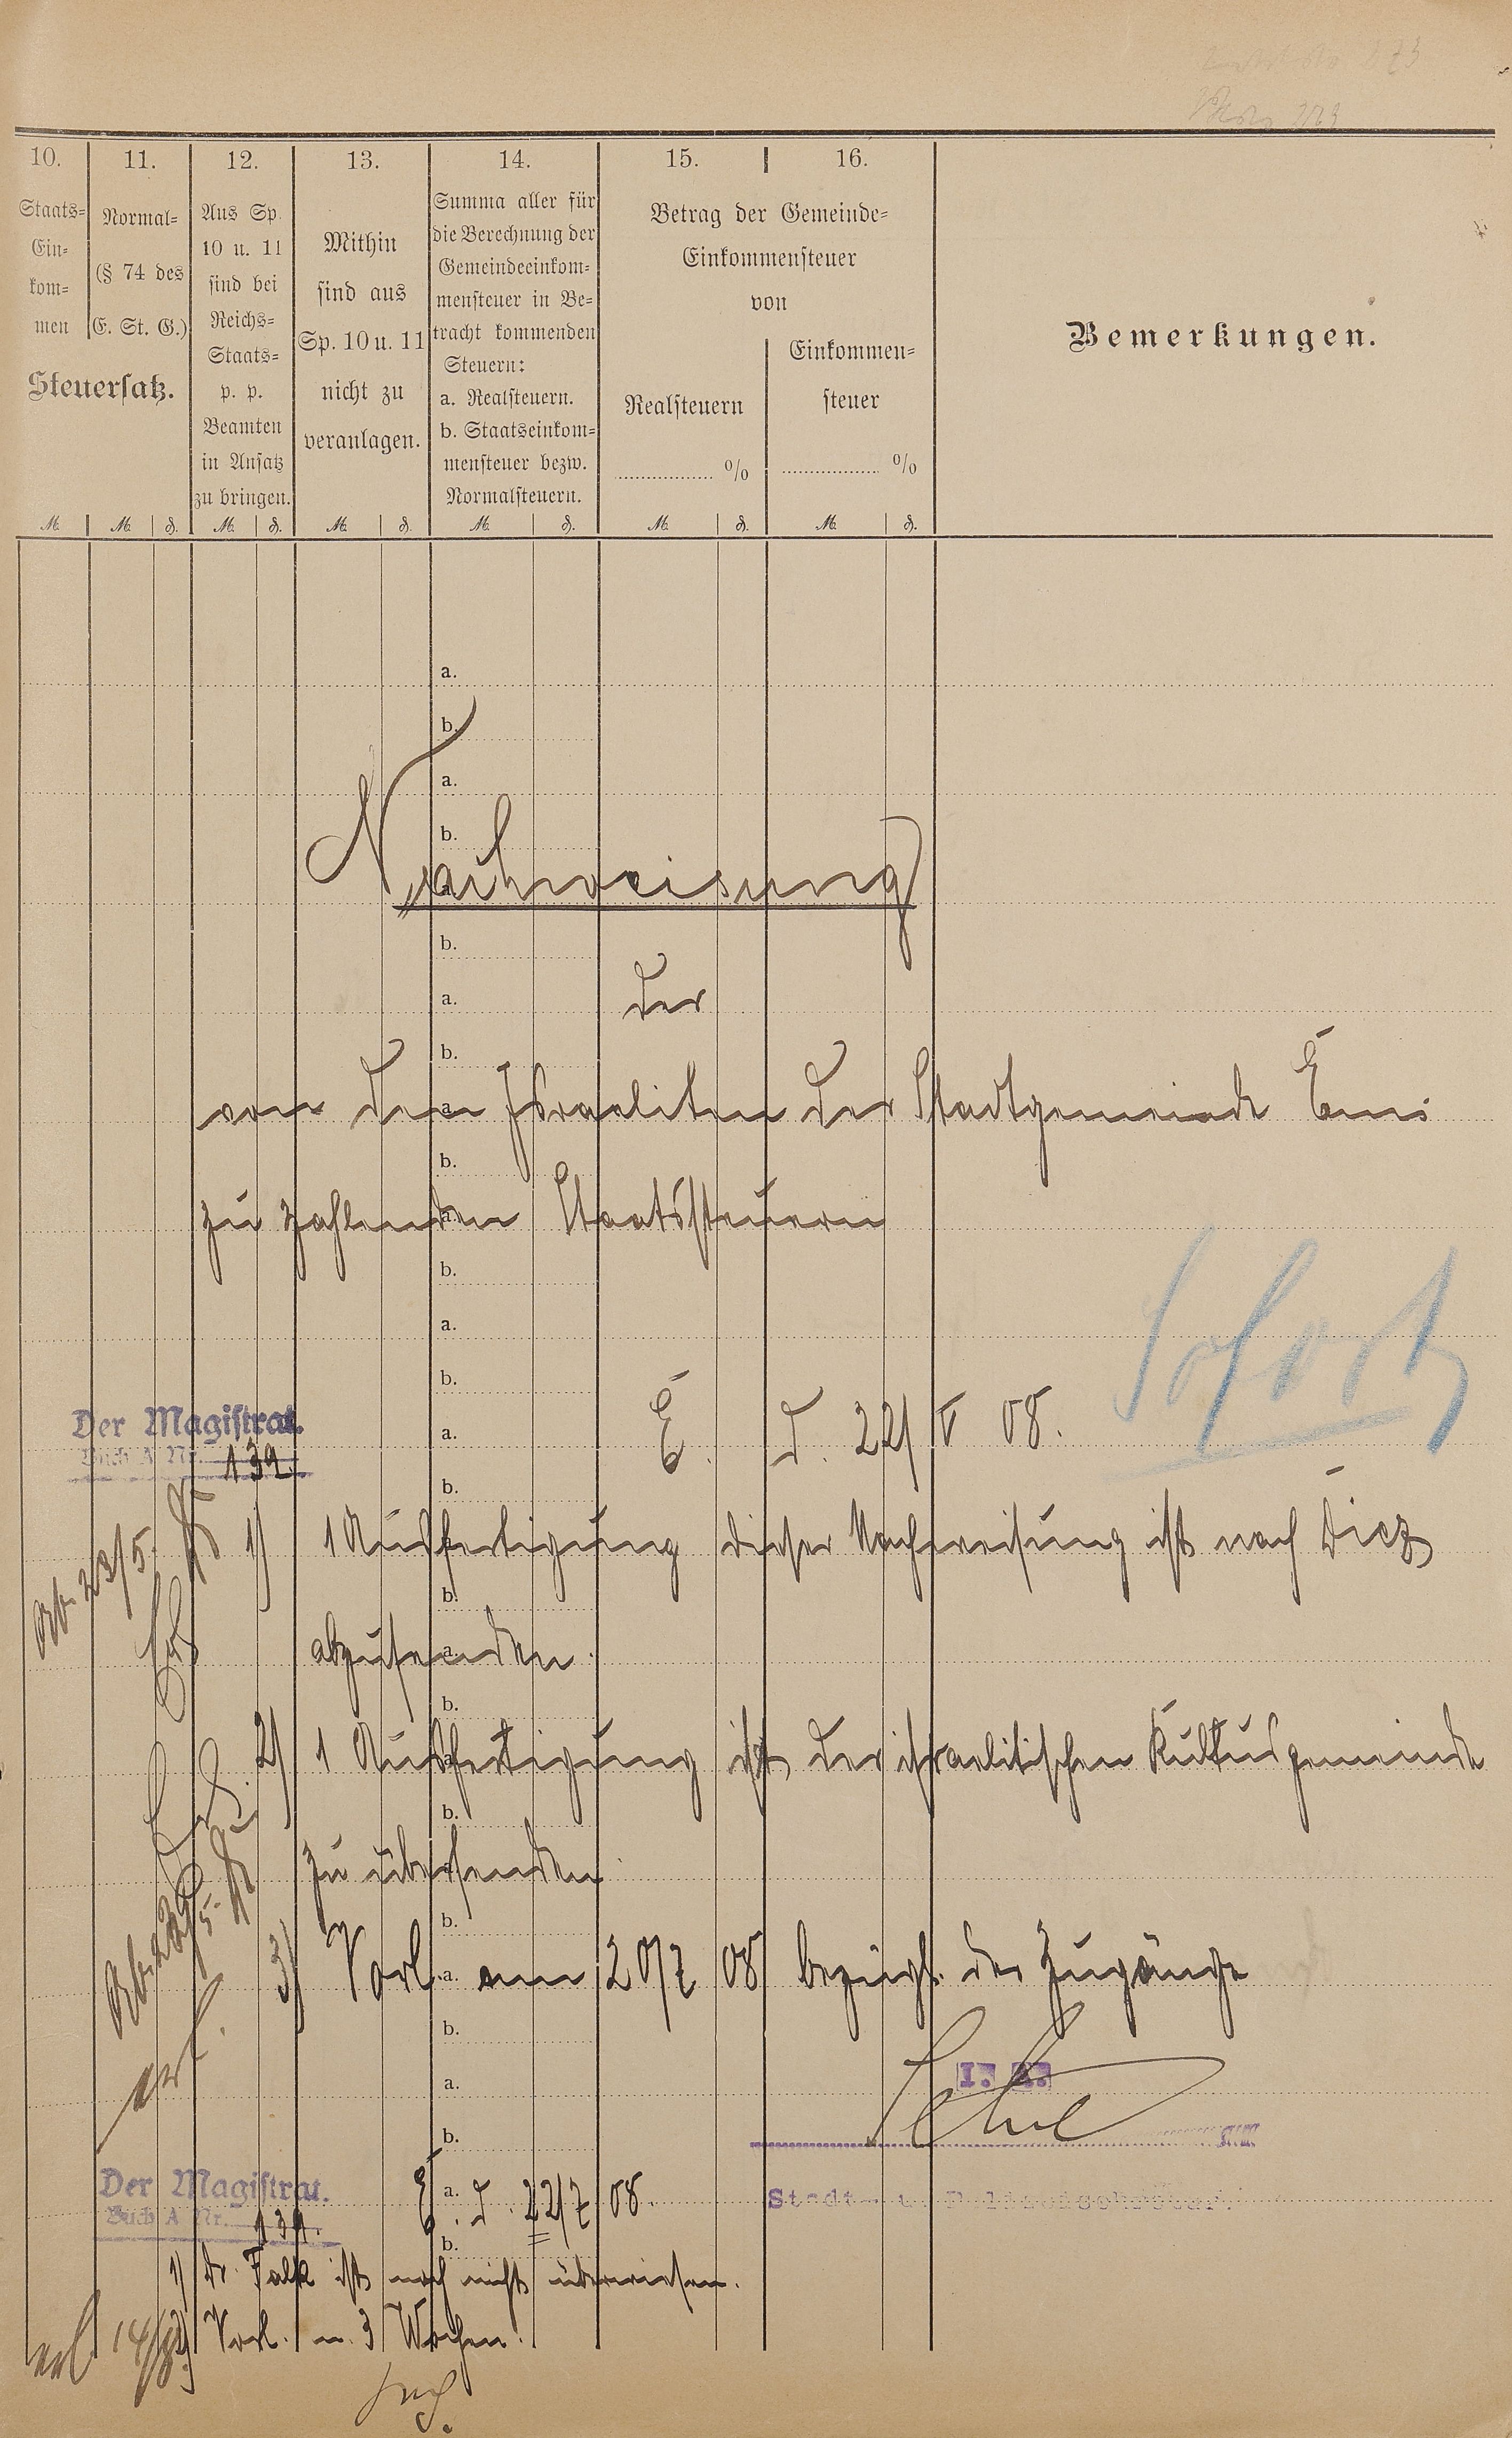 10.
11.
12.
13.
14.
15.
16.
Staats-
Ein-
kom-
men
Normal-
(§ 74 des
E. St. G.)
Steuersatz.
Aus Sp.
10 u. 11
sind bei
Reichs-
Staats-
p. p.
Beamten
in Ansatz
zu bringen.
Mithin
sind aus
Sp. 10 u. 11
nicht zu
veranlagen.
Summa aller für
die Berechnung der
Gemeindeeinkom-
mensteuer in Be-
tracht kommenden
Steuern:
a. Realsteuern.
b. Staatseinkom-
mensteuer bezw.
Normalsteuern.
Betrag der Gemeinde-
Einkommensteuer
von
Realsteuern
%
Einkommen-
steuer
%
Bemerkungen.
M. M. d. M. d. M. d. M. d. M. d. M. d.
a.
b.
a.
b.
Nachweisung
b.
a. der
b.
von den Israeliten der Stadtgemeinde Ems
b.
zu zahlenden Staatssteuern
b.
a.
Sofort
b.
Der Magistrat.
Buch A Nr. 139.
a. E. d. 22/V 08.
b.
ab 23/5.
1) 1 Ausfertigung dieser Nachweisung ist nach Diez
b.
abzusenden.
b.
2) 1 Ausfertigung ist der israelitischen Kultusgemeinde
b.
zu übersenden.
b.
3) Vorl. am 20/7 08 bezügl. der Zugänge
b.
a.
I. A.
b.
Der Magistrat.
Buch A Nr. 139.
E. d. 22/7 08.
a.
Stadt- u.
b.
1) Dr. Falk ist noch nicht überwiesen.
2) Vorl. n. 3 Wochen.